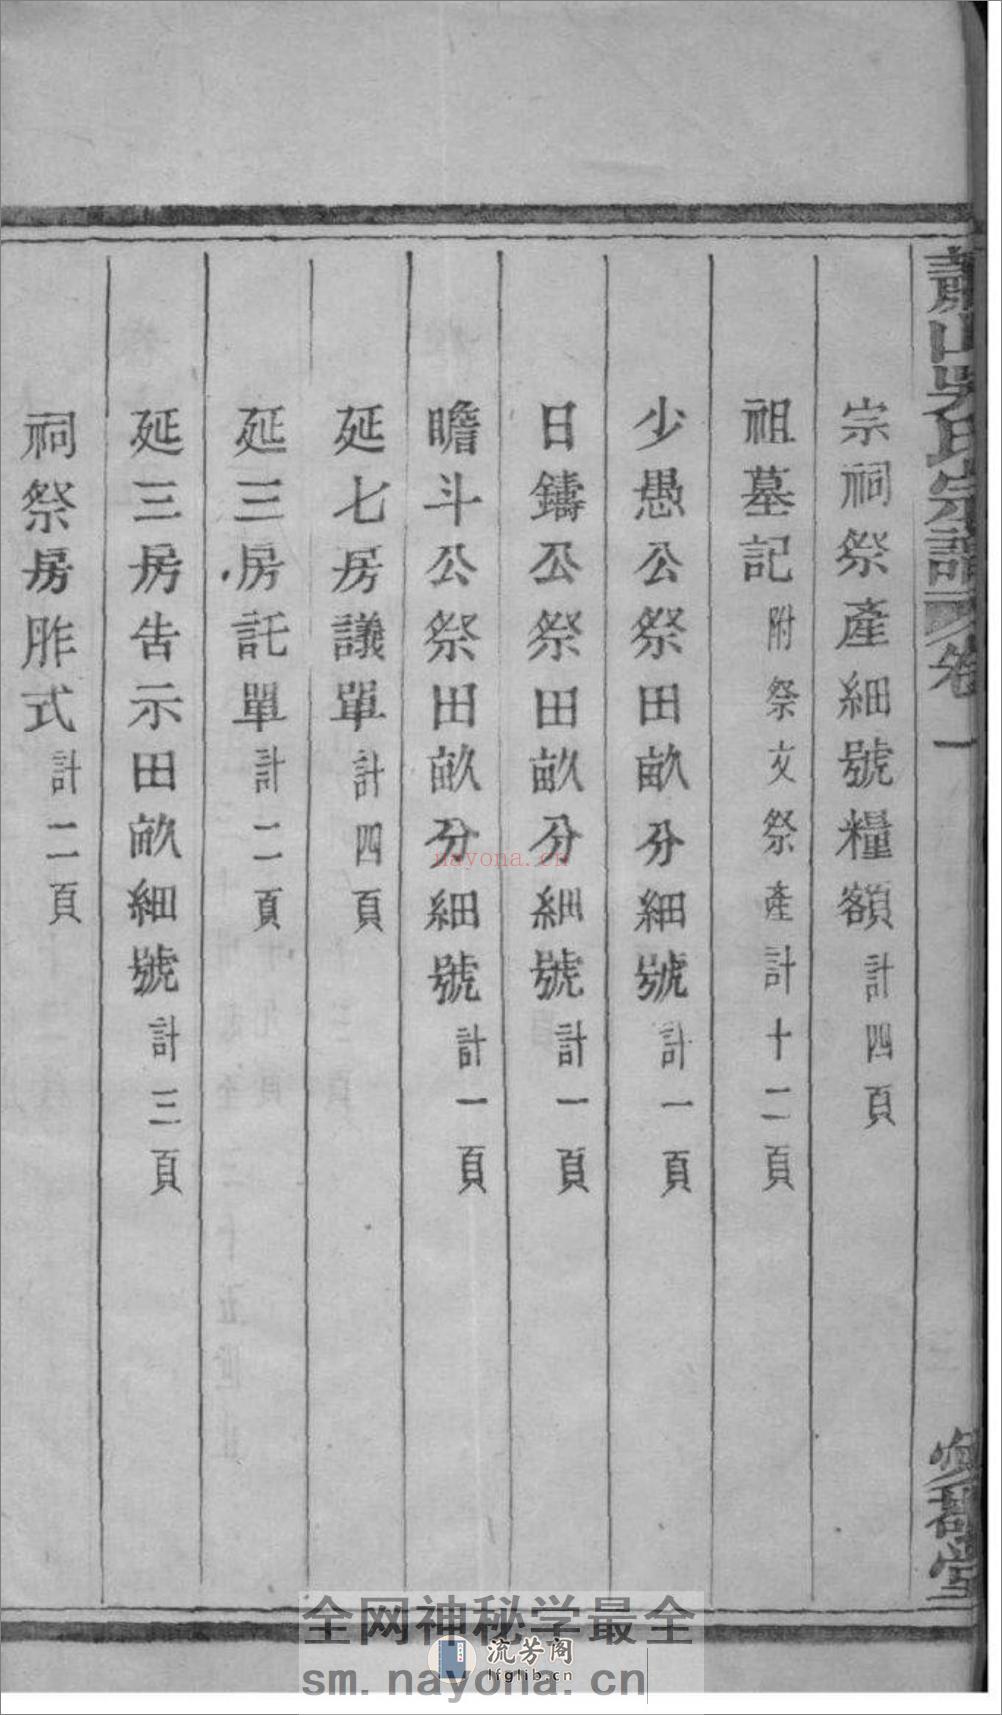 蕭山吳氏宗譜 卷一
宗祠祭產細號糧額計四頁
祖墓記附祭文祭產計十二頁
少愚公祭田畝分細號計一頁
日鑄公祭田畝分細號計一頁
瞻斗公祭田畝分細號計一頁
延七房議單計四頁
延三房託單計二頁
延三房告示田畝細號計三頁
祠祭房胙式計二頁
nayona.cn
全网神秘学最全
流芳阁
lfglib.cn
sm.nayona.cn